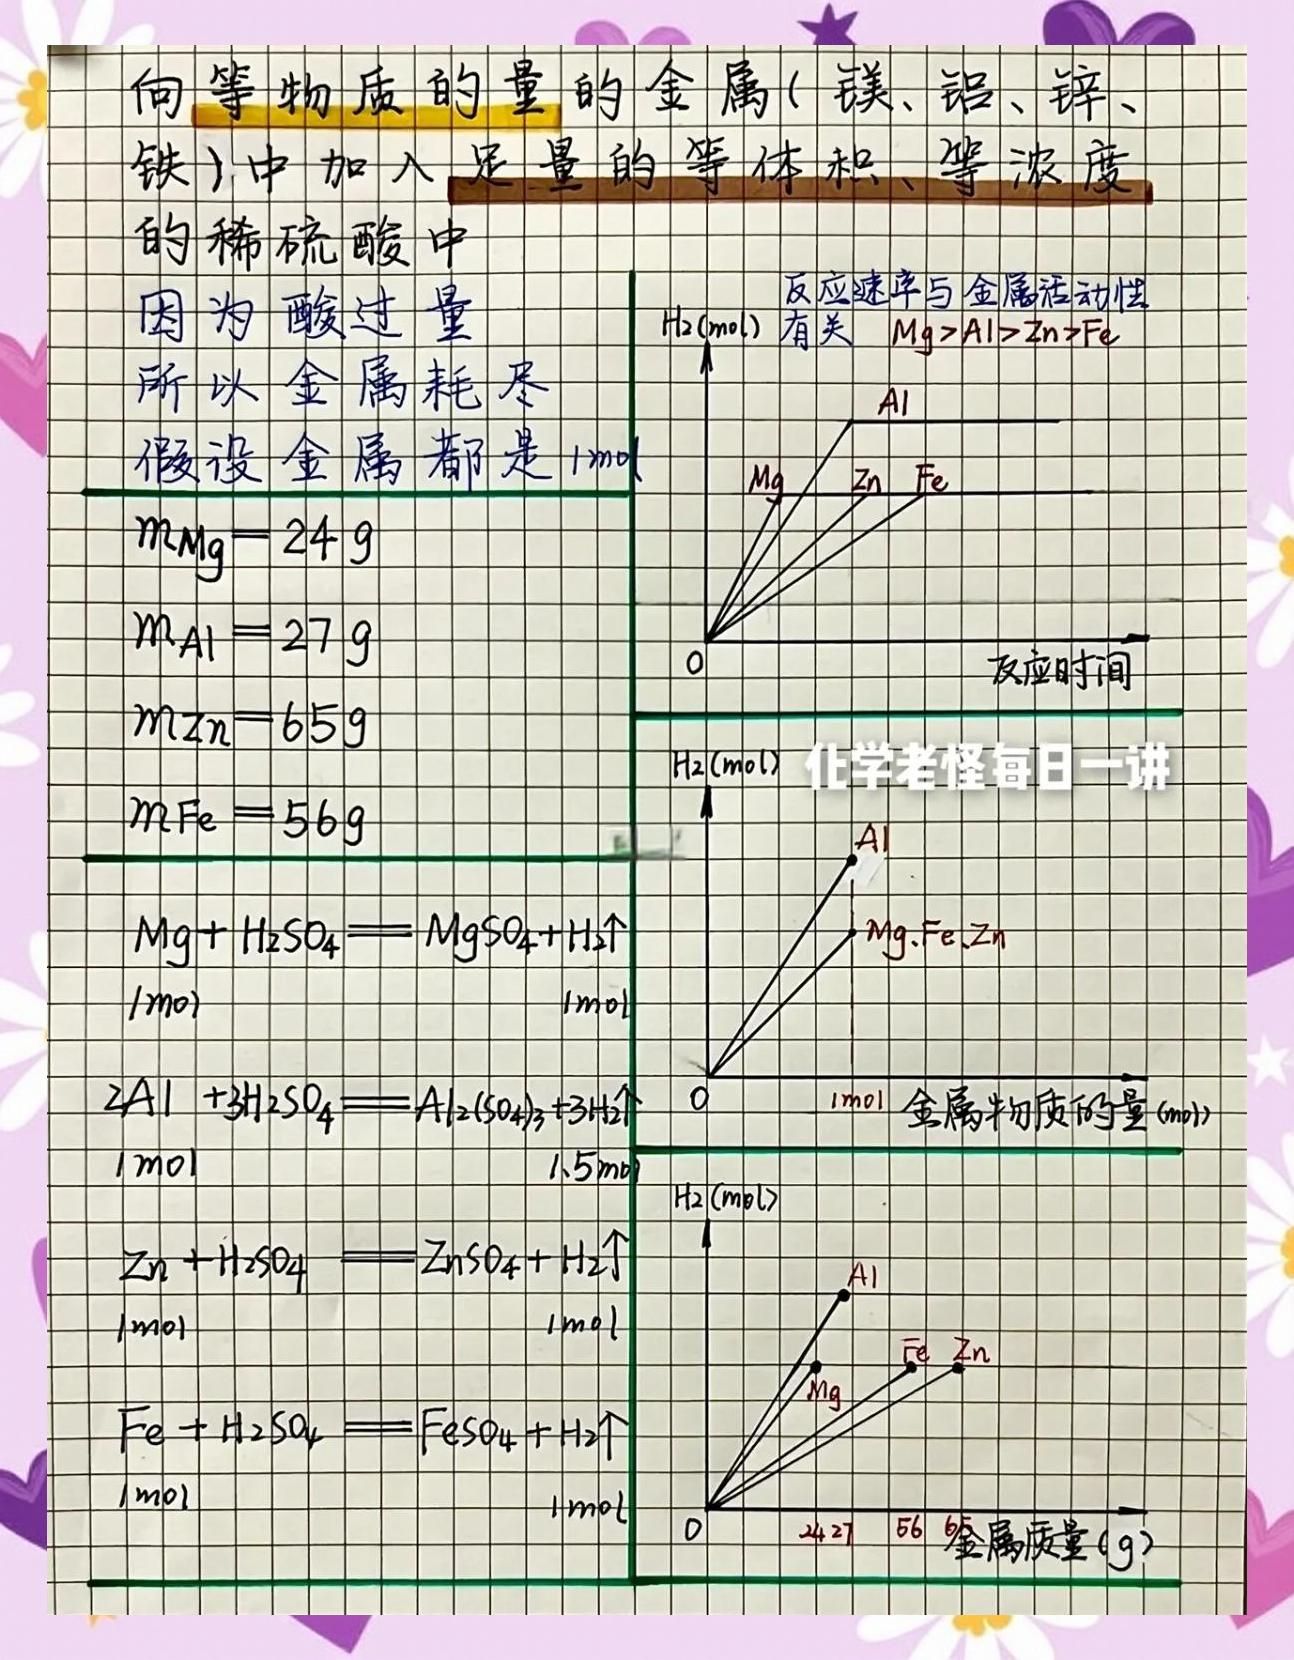 向等物质的量的金属(镁、铝、锌、
铁)中加入足量的等体积、等浓度
的稀硫酸中
因为酸过量
所以金属耗尽
假设金属都是1mol
mMg=24g
mAl=27g
mZn=65g
mFe=56g
Mg+H2SO4═MgSO4+H2↑
1mol 1mol
2Al+3H2SO4═Al2(SO4)3+3H2↑
1mol 1.5mol
Zn+H2SO4═ZnSO4+H2↑
1mol 1mol
Fe+H2SO4═FeSO4+H2↑
1mol 1mol
反应速率与金属活动性
H2(mol) 有关 Mg>Al>Zn>Fe
Al
Mg Zn Fe
0
反应时间
H2(mol) 化学老怪每日一讲
Al
Mg.Fe.Zn
0 1mol 金属物质的量(mol)
H2(mol)
Al
Fe Zn
Mg
0 24 27 56 65
金属质量(g)